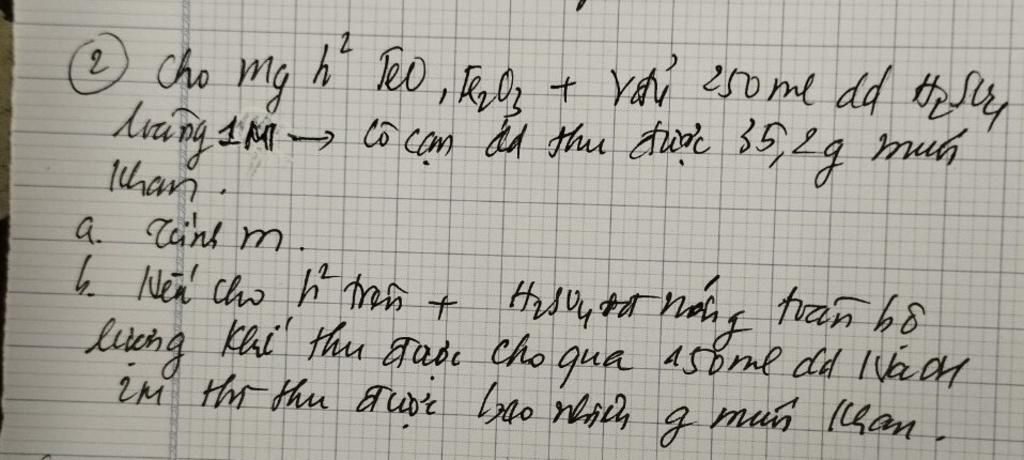 ② Cho mg h² FeO, Fe₂O₃ + vđủ 250ml dd H₂SO₄
loãng 1M → cô cạn dd thu được 35,2g muối
khan.
a. Tính m.
b. Nếu cho h² trên + H₂SO₄ đ nóng toàn bộ
lượng khí thu được cho qua 450ml dd NaOH
2M thì thu được bao nhiêu g muối khan.